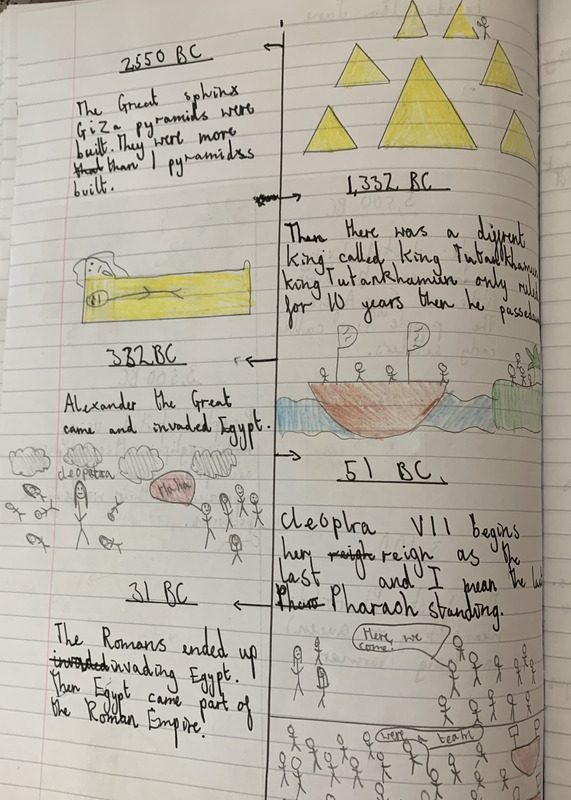 2,550 BC
The Great sphinx
Giza pyramids were
built. They were more
than 1 pyramidss
built.
1,332 BC
Then there was a diffrent
king called king Tutankhamun
king Tutankhamun only rule
for 10 years then he passed
332 BC
Alexander the Great
came and invaded Egypt.
cleopatra
Ha ha
51 BC
cleoptra VII begins
her reign as the
last and I mean the
Pharaoh standing.
31 BC
The Romans ended up
invading Egypt.
Then Egypt came part of
the Roman Empire.
Here we
come!
were a team